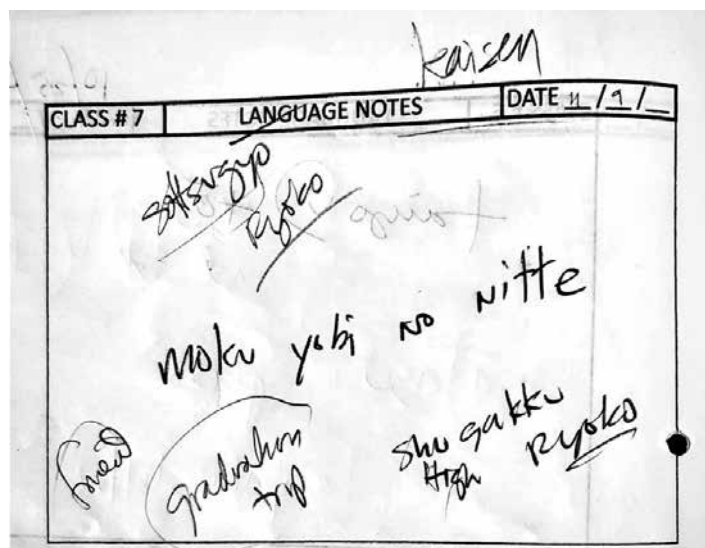 kaisen
CLASS # 7 LANGUAGE NOTES DATE 11 / 9 /
sotsugyo
Ryoko
moku yobi no nitte
graduation
trip
shu gakku
High Ryoko